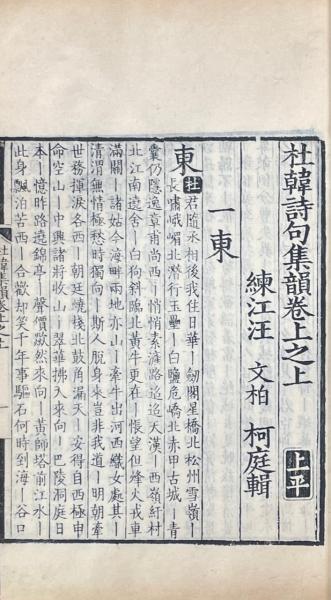 杜韓詩句集韻卷上之上
上平
練江汪 文柏 柯庭輯
一東
東 杜 君隨丞相後我住日華丨劒閣星橋北松州雪嶺丨
長嘯峨嵋北潛行玉壘丨白鹽危嶠北赤甲古城丨青
囊仍隱逸章甫尚西丨悄悄素滻路迢迢天漢丨西嶺紆村
北江南遶舍丨白狗斜臨北黃牛更在丨悵望但烽火戎車
滿關丨諸姑今海畔兩地亦山丨牽牛出河西織女處其丨
清渭無情極愁時獨向丨斯人脫身來豈非我道丨明朝牽
世務揮淚各西丨朝廷燒棧北鼓角漏天丨安得自西極申
命空山丨中興諸將收山丨翠華拂天來向丨巴陵洞庭日
本丨憶昨路遶錦亭丨聲價欻然來向丨黃師塔前江水丨
此身飄泊苦西丨合歡却笑千年事驅石何時到海丨谷口
杜韓集韻卷上之上